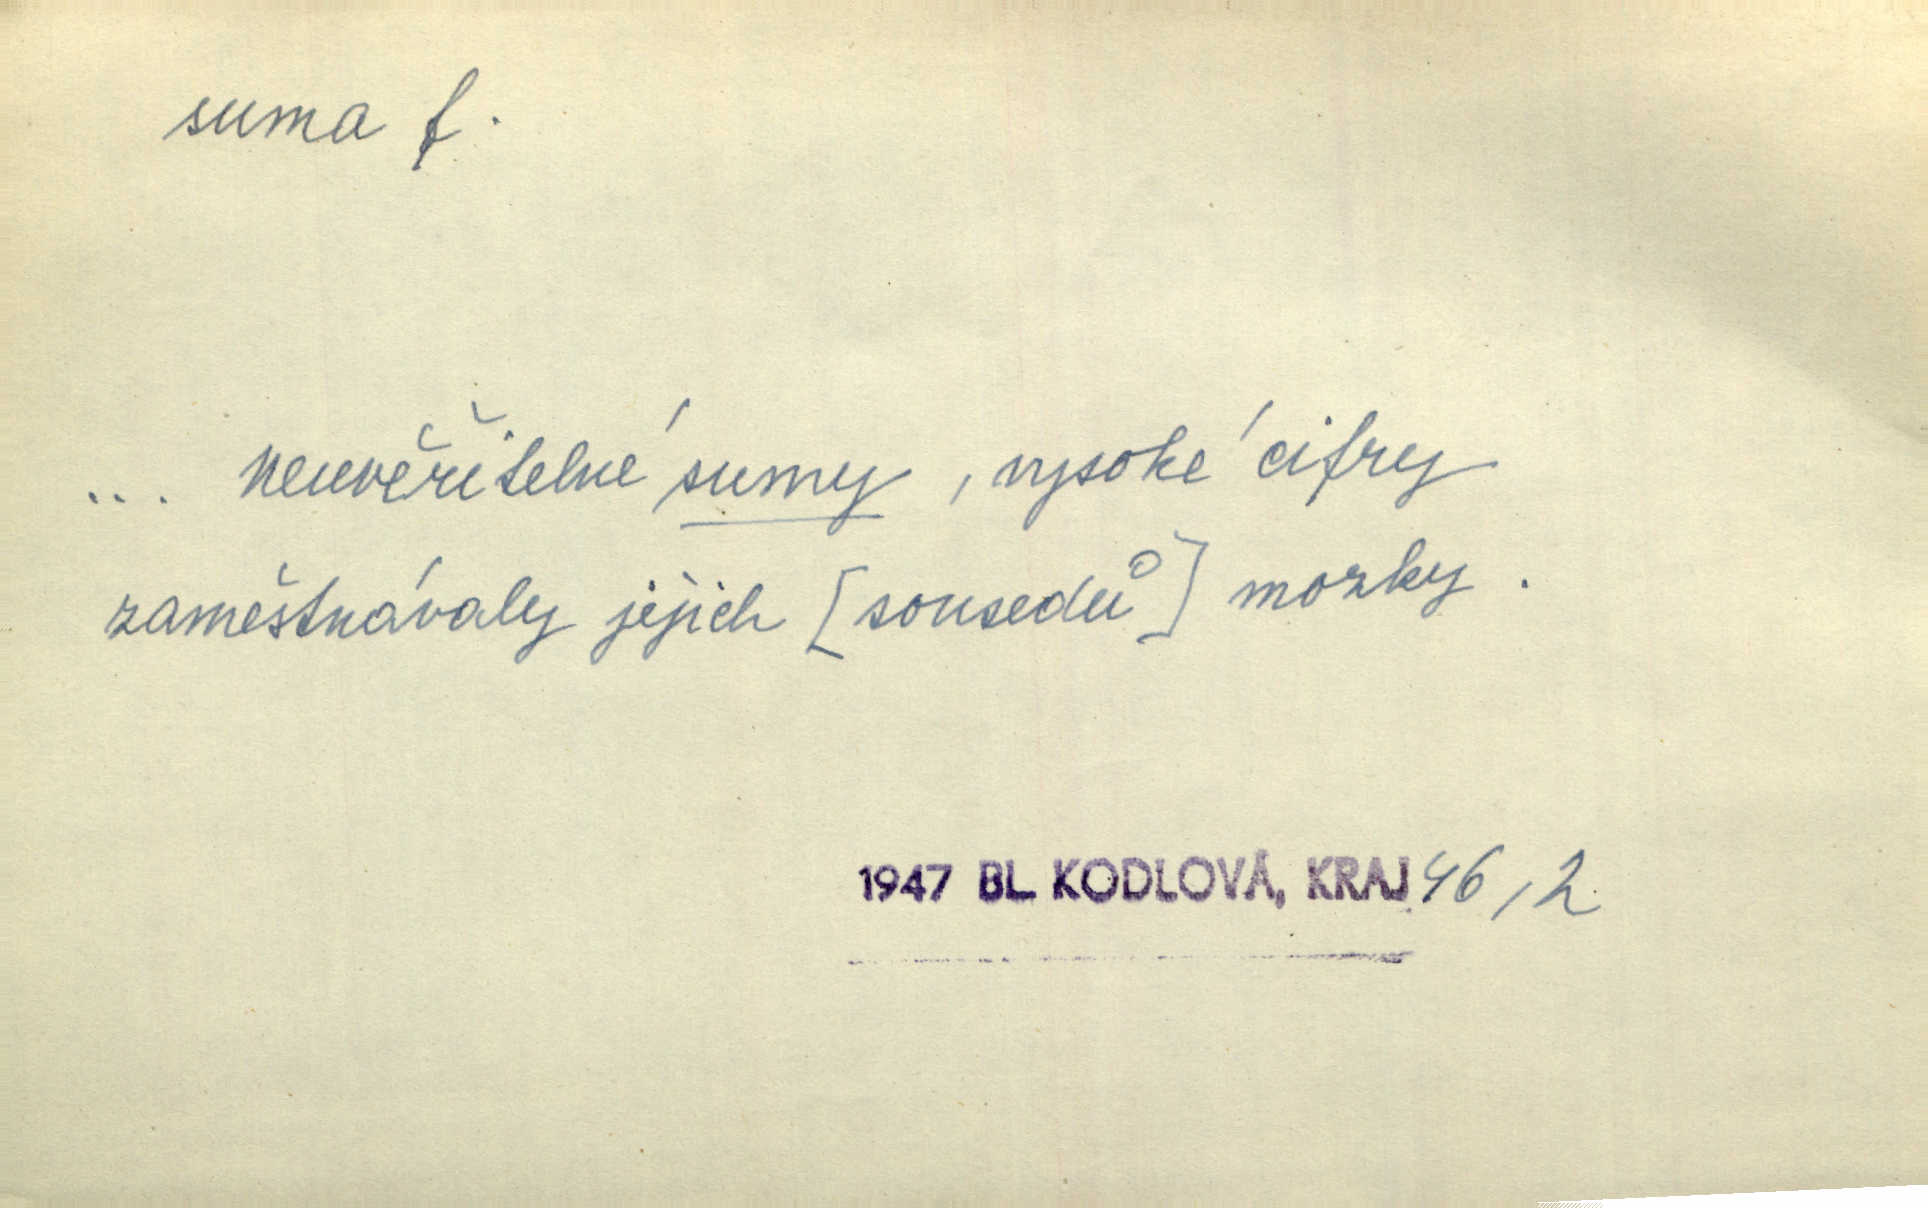 suma f.
... neuvěřitelné sumy, vysoké cifry
zaměštnávaly jejich [sousedů] mozky.
1947 BL. KODLOVÁ, KRAJ 46,2